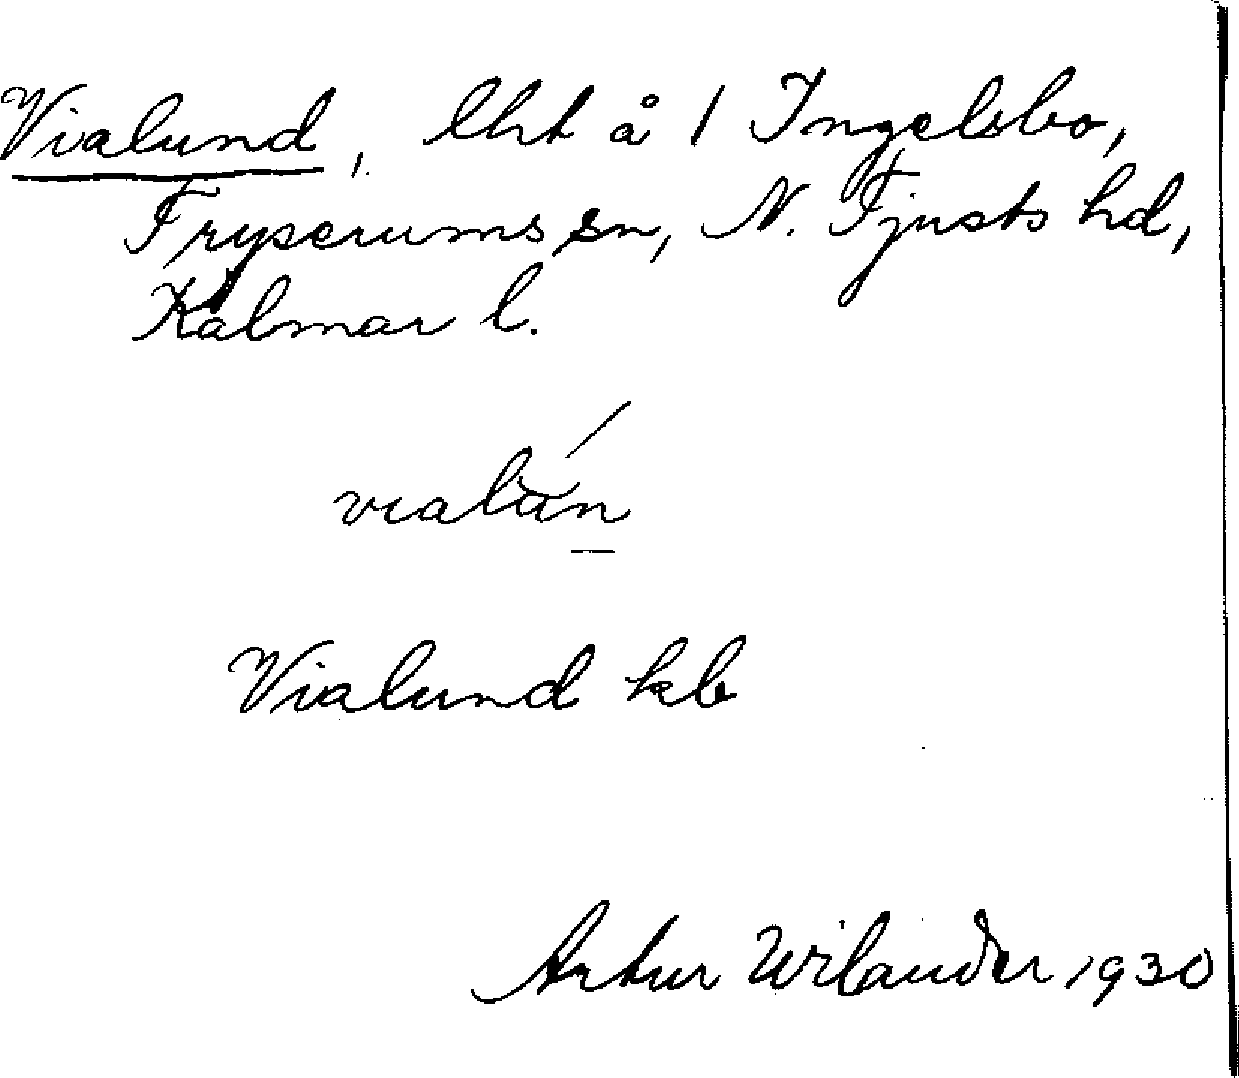 Vialund, lht å 1 Ingelsbo,
Fryserums sn, N. Tjusts hd,
Kalmar l.
vialún
Vialund kb
Artur Wilander 1930